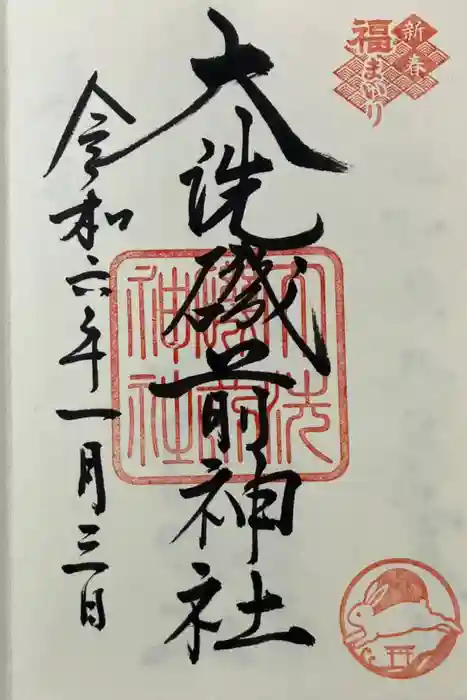 新春
福まいり
大洗磯前神社
令和六年一月三日
大洗
磯前
神社